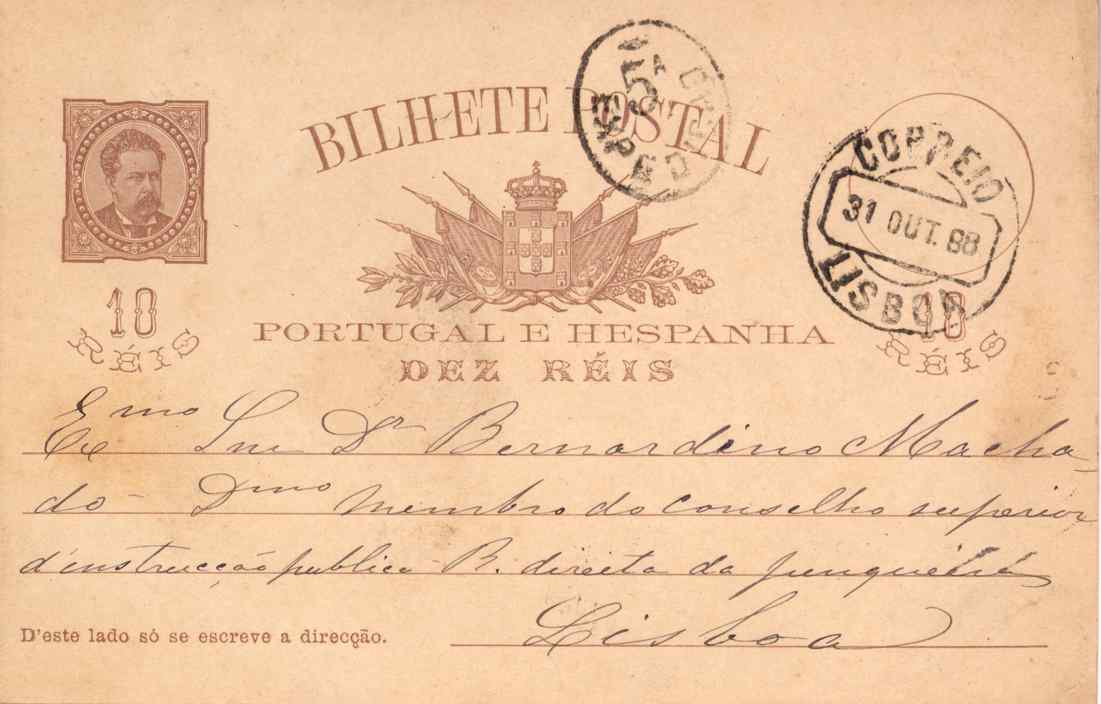 BILHETE POSTAL
5.ª EXPEDIÇÃO
CORREIO
31 OUT. 88
LISBOA
10
RÉIS
PORTUGAL E HESPANHA
DEZ RÉIS
10
RÉIS
Exmo Snr Dr Bernardino Macha-
do - Dmo membro do conselho superior
d'instrucção publica R. direita da junqueira
Lisboa
D'este lado só se escreve a direcção.